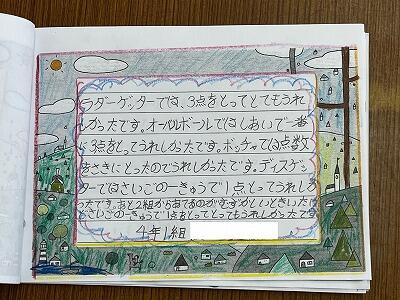 ラダーゲッターでは、3点をとってとてもうれし
かったです。オーバルボールではしあいで一番
に3点をとってうれしかったです。ボッチャでは点数
をさきにとったのでうれしかったです。ディスゲッ
ターではさいごの一きゅうで1点とってうれしか
ったです。あと2組から
さいごの一きゅうで1点をとってとってもうれしかったです
4年1組